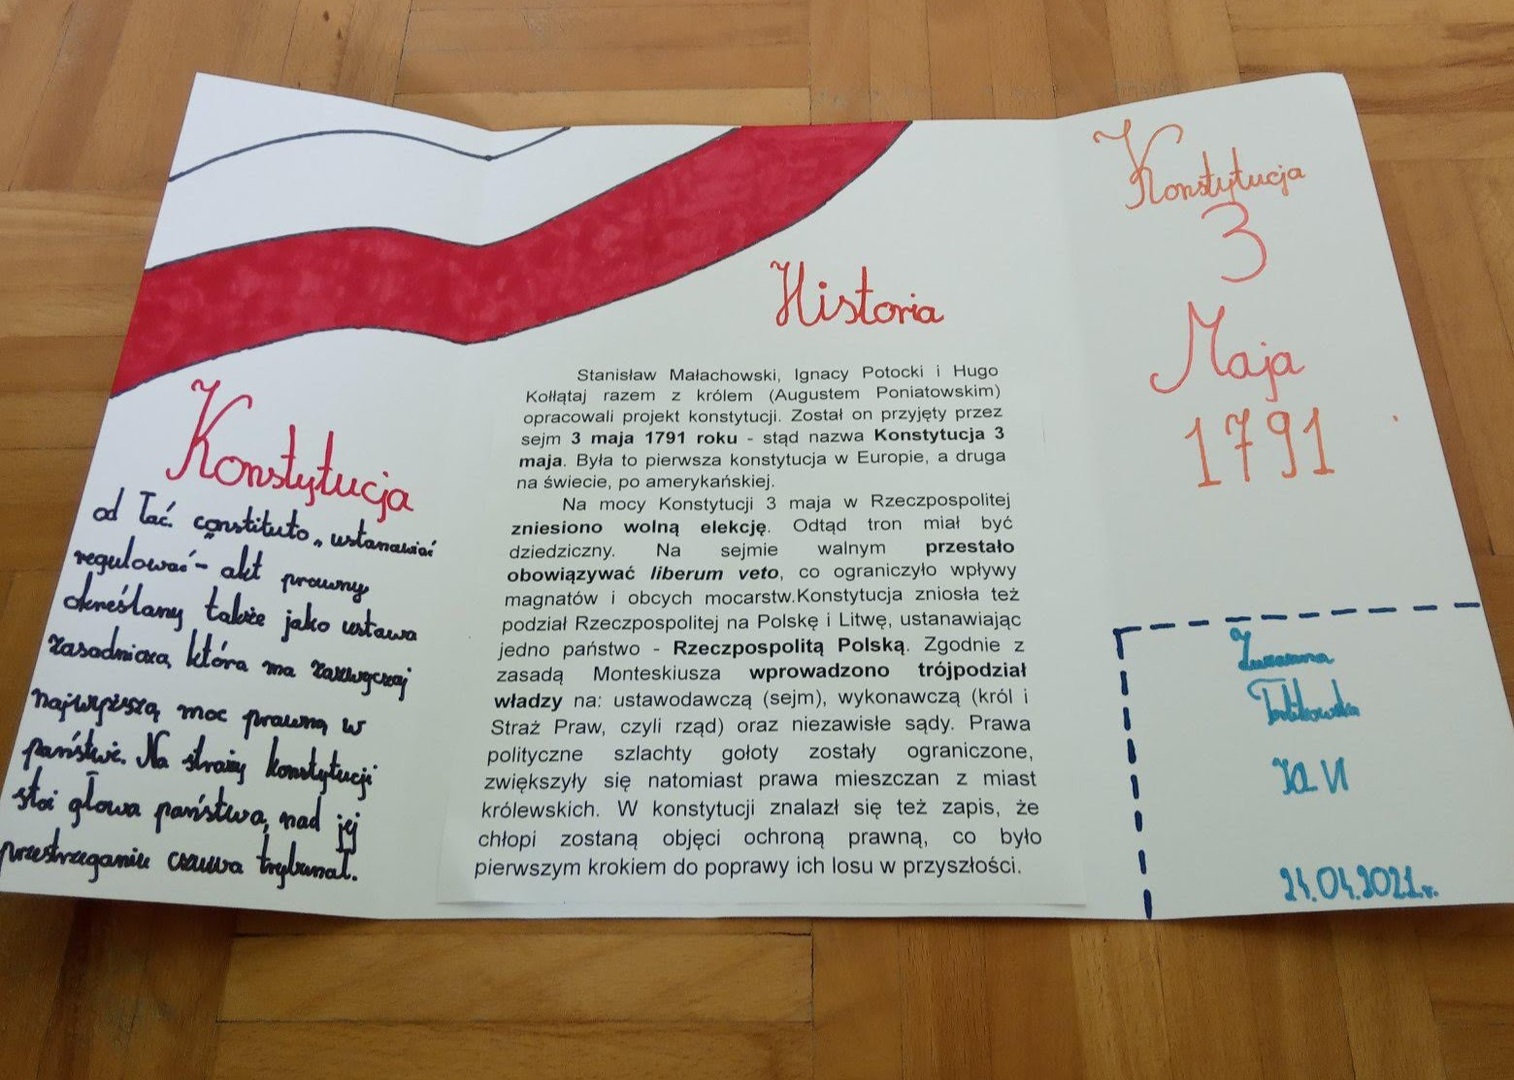 Konstytucja
od łać. "constituto" ustanawiać
regulować - akt prawny
określany także jako ustawa
zasadnicza, która ma zazwyczaj
najwyższą moc prawną w
państwie. Na straży konstytucji
stoi głowa państwa, nad jej
przestrzeganiem czuwa trybunał.
Historia
Stanisław Małachowski, Ignacy Potocki i Hugo
Kołłątaj razem z królem (Augustem Poniatowskim)
opracowali projekt konstytucji. Został on przyjęty przez
sejm 3 maja 1791 roku - stąd nazwa Konstytucja 3
maja. Była to pierwsza konstytucja w Europie, a druga
na świecie, po amerykańskiej.
Na mocy Konstytucji 3 maja w Rzeczpospolitej
zniesiono wolną elekcję. Odtąd tron miał być
dziedziczny. Na sejmie walnym przestało
obowiązywać liberum veto, co ograniczyło wpływy
magnatów i obcych mocarstw.Konstytucja zniosła też
podział Rzeczpospolitej na Polskę i Litwę, ustanawiając
jedno państwo - Rzeczpospolitą Polską. Zgodnie z
zasadą Monteskiusza wprowadzono trójpodział
władzy na: ustawodawczą (sejm), wykonawczą (król i
Straż Praw, czyli rząd) oraz niezawisłe sądy. Prawa
polityczne szlachty gołoty zostały ograniczone,
zwiększyły się natomiast prawa mieszczan z miast
królewskich. W konstytucji znalazł się też zapis, że
chłopi zostaną objęci ochroną prawną, co było
pierwszym krokiem do poprawy ich losu w przyszłości.
Konstytucja
3
Maja
1791
Zuzanna
24.04.2021r.